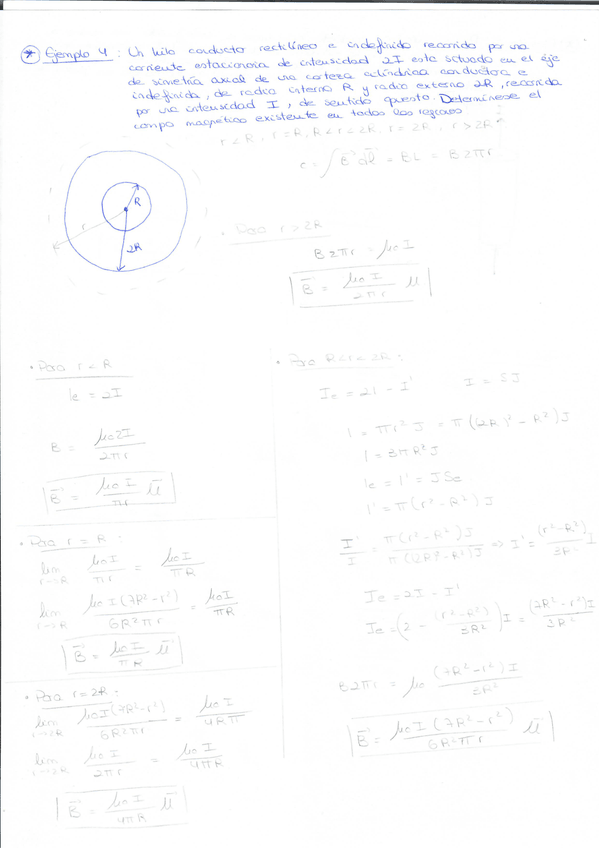 * Ejemplo 4 : Un hilo conducto rectilíneo e indefinido recorrido por una
corriente estacionaria de intensidad 2I esta situado en el eje
de simetría axial de una corteza cilíndrica conductora e
indefinida, de radio interno R y radio externo 2R, recorrida
por una intensidad I, de sentido opuesto. Determínese el
campo magnético existente en todas las regiones
r < R, r = R, R < r < 2R, r = 2R, r > 2R
c = ∫ B⃗ dl⃗ = BL = B2πr
R
r
2R
• Para r > 2R
B2πr = μ0I
B⃗ = μ0I / 2πr μ⃗
• Para r < R
Ie = 2I
B = μ02I / 2πr
B⃗ = μ0I / πr μ⃗
• Para r = R :
lim r→R μ0I / πr = μ0I / πR
lim r→R μ0I(7R²-r²) / 6R²πr = μ0I / πR
B⃗ = μ0I / πR μ⃗
• Para r = 2R :
lim r→2R μ0I(7R²-r²) / 6R²πr = μ0I / 4Rπ
lim r→2R μ0I / 2πr = μ0I / 4πR
B⃗ = μ0I / 4πR μ⃗
• Para R < r < 2R :
Ie = 2I - I'
I = SJ
I = πr²J = π((2R)² - R²)J
I = 3πR²J
Ie = I' = JSe
I' = π(r² - R²)J
I' / I = π(r²-R²)J / π((2R)²-R²)J ⇒ I' = (r²-R²) / 3R² I
Ie = 2I - I'
Ie = (2 - (r²-R²) / 3R²)I = (7R²-r²)I / 3R²
B2πr = μ0 (7R²-r²)I / 3R²
B⃗ = μ0I(7R²-r²) / 6R²πr μ⃗